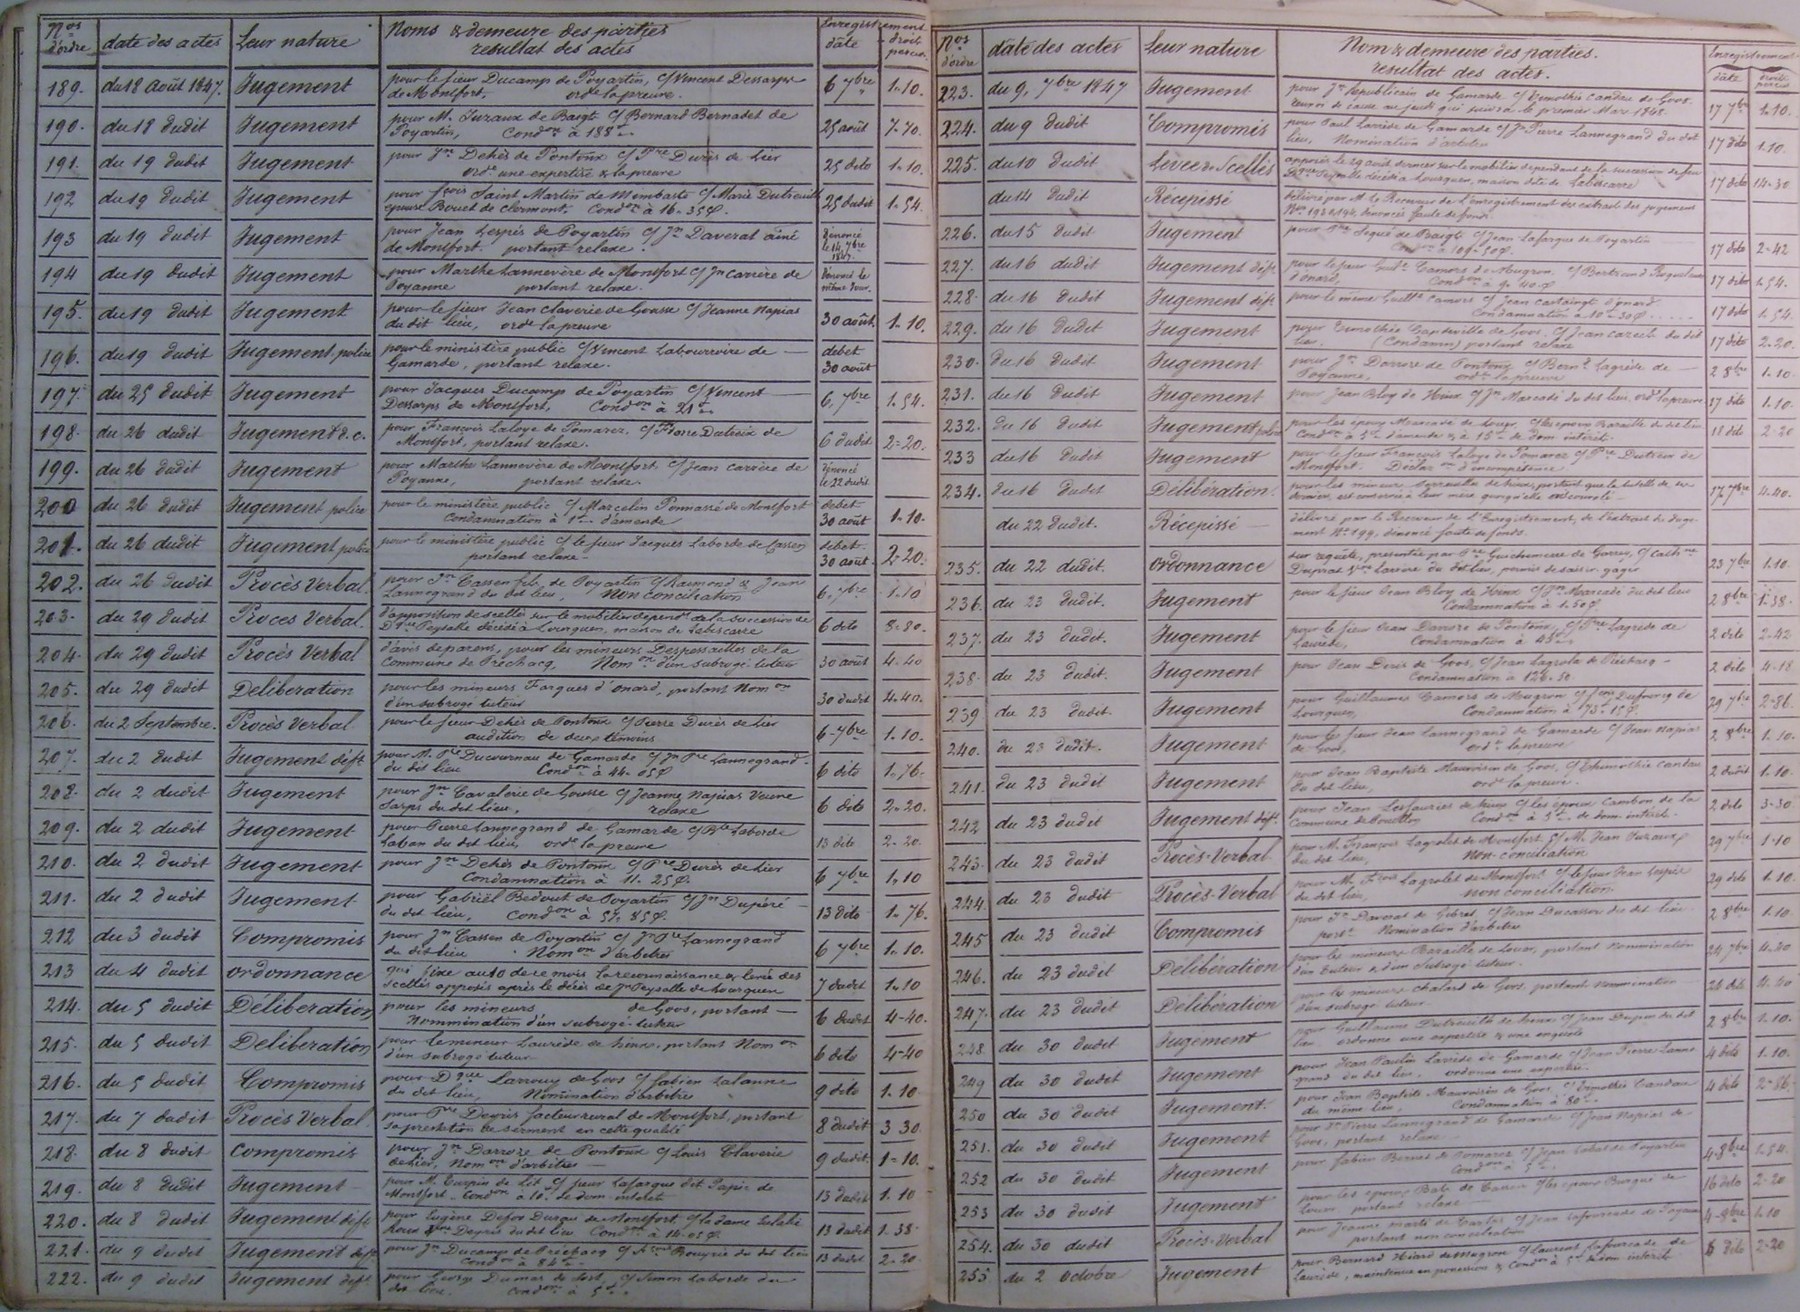 Nos d'ordre | date des actes | Leur nature | Noms & demeure des parties résultat des actes | Enregistrement date | droit perçu
189. du 18 août 1847. Jugement pour le sieur Ducamp de Poyartin, c/ Vincent Dessarps
de Montfort, ordte la preuve. 6 7bre 1.10.
190. du 18 dudit Jugement pour M. Juzaux de Baigts c/ Bernard Bernadet de
Poyartin, Condon à 188f 25 août 7.70.
191. du 19 dudit Jugement pour Jn Dehès de Pontonx c/ Pre Durès de Lier
ordte une expertise & la preuve 25 dito 1.10.
192 du 19 dudit Jugement pour fçois Saint Martin de Mimbaste c/ Marie Dutreuilh
épouse Bouet de Clermont. Condon à 16-35c. 25 dudit 1.54.
193 du 19 dudit Jugement pour Jean Lespès de Poyartin c/ Jn Daverat aîné
de Montfort. portant relaxe. Dénoncé le 14 7bre 1847.
194 du 19 dudit Jugement pour Marthe Lannevère de Montfort c/ Jn Carrère de
Poyanne portant relaxe. Dénoncé le même jour.
195. du 19 dudit Jugement pour le sieur Jean Claverie de Gousse c/ Jeanne Napias
du dit lieu, ordte la preuve 30 août 1.10.
196. du 19 dudit Jugement police pour le ministère public c/ Vincent Labourroire de
Gamarde, portant relaxe. debet 30 août
197. du 25 dudit Jugement pour Jacques Ducamp de Poyartin c/ Vincent
Dessarps de Montfort, Condon à 21f 6. 7bre 1.54.
198. du 26 dudit Jugement d.c. pour François Laloye de Pomarez. c/ Pierre Dutreix de
Montfort, portant relaxe. 6 dudit 2-20.
199. du 26 dudit Jugement pour Marthe Lannevère de Montfort c/ Jean Carrère de
Poyanne, portant relaxe. Dénoncé le 22 dudit
200 du 26 dudit Jugement police pour le ministère public c/ Marcelin Ponnassé de Montfort
Condamnation à 1f d'amende debet 30 août 1-10.
201. du 26 dudit Jugement police pour le ministère public c/ le sieur Jacques Laborde de Cassen
portant relaxe debet 30 août 2-20.
202. du 26 dudit Procès Verbal. pour Jn Cassen fils, de Poyartin c/ Raimond & Jean
Lannegrand du dit lieu, Non conciliation 6. 7bre 1.10
203. du 29 dudit Procès Verbal. d'apposition de scellés sur le mobilier dépendt de la succession de
Dque Peysalle décédé à Lourquen, maison de Labiscarre 6 dito 8-80.
204. du 29 dudit Procès Verbal d'avis de parens, pour les mineurs Despessailles de la
Commune de Préchacq, Nomon d'un subrogé tuteur 30 août 4-40
205. du 29 dudit Deliberation pour les mineurs Farques d'Onard, portant Nomon
d'un subrogé tuteur 30 dudit 4-40.
206. du 2 Septembre. Procès Verbal. pour le sieur Dehès de Pontonx c/ Pierre Durès de Lier
audition de deux témoins 6-7bre 1.10.
207. du 2 dudit Jugement déft pour M. Pre Ducournau de Gamarde c/ Jn Pre Lannegrand
du dit lieu Condon à 44-05c 6 dito 1-76.
208. du 2 dudit Jugement pour Jn Cavalerie de Gousse c/ Jeanne Napias Veuve
Sarps du dit lieu, relaxe 6 dito 2-20.
209. du 2 dudit Jugement pour Pierre Lannegrand de Gamarde c/ Bte Laborde
Laban du dit lieu, ordte la preuve 13 dito 2-20.
210. du 2 dudit Jugement pour Jn Dehès de Pontonx c/ Pre Durès de Lier
Condamnation à 11-25c. 6 7bre 1.10
211. du 2 dudit Jugement pour Gabriel Bedout de Poyartin c/ Jn Dupéré
du dit lieu, Condon à 57-85c. 13 dito 1-76.
212 du 3 dudit Compromis pour Jn Cassen de Poyartin c/ Jn Pre Lannegrand
du dit lieu Nomon d'arbitres 6 7bre 1.10.
213 du 4 dudit ordonnance qui fixe au 10 de ce mois la reconnaissance & levée des
scellés apposés après le décès de Jn Peysalle de Lourquen 7 dudit 1.10
214. du 5 dudit Déliberation pour les mineurs de Goos, portant
Nommination d'un subrogé-tuteur 6 dudit 4-40.
215. du 5 dudit Deliberation pour le mineur Laurède de hinx, portant Nomon
d'un subrogé tuteur 6 dito 4-40
216. du 5 dudit Compromis pour Dque Larrouy de Goos c/ fabien Lalanne
du dit lieu, Nomination d'arbitres 9 dito 1-10
217. du 7 dudit Procès Verbal. pour Pre Deyris facteur rural de Montfort, portant
sa prestation de serment en cette qualité 8 dudit 3 30.
218. du 8 dudit Compromis pour Jn Darroze de Pontonx c/ Louis Claverie
de Lier, Nomon d'arbitres 9 dudit. 1-10.
219. du 8 dudit Jugement pour M. Turpin de Lit c/ sieur Lafargue dit Papie de
Montfort. Condon à 10f de dom. intérêt 13 dudit 1.10
220. du 8 dudit Jugement déft pour Eugène Defos Durau de Montfort, c/ la dame Eulalie
Roux Vve Deyris du dit lieu Condon à 14-05c. 13 dudit 1-38.
221. du 9 dudit Jugement déft. pour Jn Ducamp de Préchacq c/ Ante Bouyrie du dit lieu
Condon à 84f 13 dudit 2-20.
222. du 9 dudit Jugement déft pour George Dumas de Sort, c/ Simon Laborde du
dit lieu. Condon à 5f.
Nos d'ordre | date des actes | Leur nature | Nom & demeure des parties. résultat des actes. | Enregistrement date | droit perçu
223. du 9, 7bre 1847 Jugement pour Jn Republicain de Gamarde c/ Thimothée Candau de Goos.
renvoi de cause au jeudi qui suivra le premier Mars 1848. 17 7bre 1.10.
224. du 9 dudit Compromis pour Paul Larrède de Gamarde c/ Jn Pierre Lannegrand du dit
lieu, Nomination d'arbitres 17 dito 1.10.
225. du 10 dudit Levée de Scellés apposés le 29 août dernier sur le mobilier dépendant de la succession de feu
Dque Peysalle décédé à Lourquen, maison dite de Labiscarre 17 dito 14-30
du 14 dudit Récépissé délivré par M. le Receveur de l'enregistrement des extraits des jugements
Nos 193 & 194, dénoncés faute de fonds.
226. du 15 dudit Jugement pour Pre Sequé de Baigts c/ Jean Lafargue de Poyartin
Condon à 109-50c. 17 dito 2-42
227. du 16 dudit Jugement déft. pour le sieur Guille Camors de Mugron. c/ Bertrand
d'Onard, Condon à 9-40c 17 dito 1.54.
228. du 16 dudit Jugement déft. pour le même Guille Camors c/ Jean Castaingt d'Onard
Condamnation à 10-30c 17 dito 1.54.
229. du 16 dudit Jugement pour Timothée Capdeville de Goos, c/ Jean du dit
lieu. (Condamn) portant relaxe 17 dito 2-20.
230. du 16 dudit Jugement pour Jn Darroze de Pontonx c/ Bernd Lagrède de
Poyanne, ordte la preuve 2 8bre 1-10.
231. du 16 dudit Jugement pour Jean Bloy de Hinx c/ Jn Marcadé du dit lieu, ordte la preuve 17 dito 1.10.
232. du 16 dudit Jugement police pour les époux de Louer, c/ les époux Baraille du dit lieu
Condon à 5f d'amende & à 15f de dom. intérêt. 18 dito 2-20
233 du 16 dudit Jugement pour le sieur François Laloye de Pomarez c/ Pre Dutreix de
Montfort. Déclaron d'incompétence
234. du 16 dudit Délibération. pour les mineurs de hinx, portant que la tutelle de ces
derniers, est conservée à leur mère quoiqu'elle 17 7bre 4.40.
du 22 dudit. Récépissé délivré par le Receveur de l'Enregistrement, de l'extrait du Juge-
ment No 199, dénoncé faute de fonds.
235. du 22 dudit. ordonnance sur requête, présentée par Pre Guichemerre de Garrey, c/ Cathne
Duprat Vve Larrère du dit lieu, permis de saisir-gager 23 7bre 1.10.
236. du 23 dudit. Jugement pour le sieur Jean Bloy de Hinx c/ Jn Marcadé du dit lieu
Condamnation à 1-50c 2 8bre 1-38.
237. du 23 dudit. Jugement pour le sieur Jean Darroze de Pontonx, c/ Pre Lagrède de
Laurède, Condamnation à 2 dito 2-42
238. du 23 dudit. Jugement pour Jean Dorès de Goos, c/ Jean Lagrola de Préchacq
Condamnation à 126-50 2 dito 4-18
239 du 23 dudit. Jugement pour Guillaumes Camors de Mugron c/ Jean Dufourcq de
Lourquen, Condamnation à 73-15c. 29 7bre 2-86.
240. du 23 dudit. Jugement pour le sieur Jean Lannegrand de Gamarde c/ Jean Napias
de Goos, ordte la preuve 2 8bre 1.10.
241. du 23 dudit Jugement pour Jean Baptiste Mauvoisin de Goos, c/ Thimothée Candau
du dit lieu, ordte la preuve. 2 dudit 1.10.
242 du 23 dudit Jugement déft. pour Jean Lesfauries de hinx c/ les époux Cambon de la
Commune de Condon à 5f de dom. intérêt. 2 dito 3-30
243. du 23 dudit Procès-Verbal pour M. François Lagrolet de Montfort c/ M. Jean Juzaux
du dit lieu, Non conciliation 29 7bre 1-10
244 du 23 dudit Procès-Verbal pour M. François Lagrolet de Montfort c/ le sieur Jean Lespès
du dit lieu, non conciliation 29 dito 1.10.
245 du 23 dudit Compromis pour Jn Daverat de Gibret, c/ Jean Ducasson du dit lieu
portt Nomination d'arbitres 2 8bre 1.10
246. du 23 dudit Délibération pour les mineurs Baraille de Louer, portant Nommination
d'un tuteur & d'un subrogé tuteur. 24 7bre 4.20
247. du 23 dudit Délibération pour les mineurs Chalard de Goos, portant nommination
d'un subrogé tuteur 24 dito 4.40
248 du 30 dudit Jugement pour Guillaume Dutreuilh de hinx c/ Jean Dupin du dit
lieu ordonne une expertise & une enquête 2 8bre 1.10.
249 du 30 dudit Jugement pour Jean Paulin Larrède de Gamarde c/ Jean Pierre Lanne
grand du dit lieu. ordonne une expertise. 4 dito 1.10.
250 du 30 dudit Jugement. pour Jean Baptiste Mauvoisin de Goos, c/ Timothée Candau
du même lieu, Condamnation à 80f 4 dito 2-86.
251. du 30 dudit Jugement pour Jn Pierre Lannegrand de Gamarde c/ Jean Napias de
Goos, portant relaxe
252 du 30 dudit Jugement pour fabien Bernet de Pomarez c/ Jean de Poyartin
Condon à 5f 4-8bre 1.54.
253 du 30 dudit Jugement pour les époux Bats de Cassen c/ les époux Burgué de
Louer portant relaxe 16 dito 2-20
254. du 30 dudit Procès-Verbal pour Jeanne Marti de c/ Jean Lafourcade de Poyanne
portant non conciliation 4-8bre 1.10
255 du 2 octobre Jugement pour Bernard Hiard de Mugron c/ Laurent Lafourcade de
Laurède, maintenu en possession & Condon à 5f de dom intérêt. 6 dito 2-20